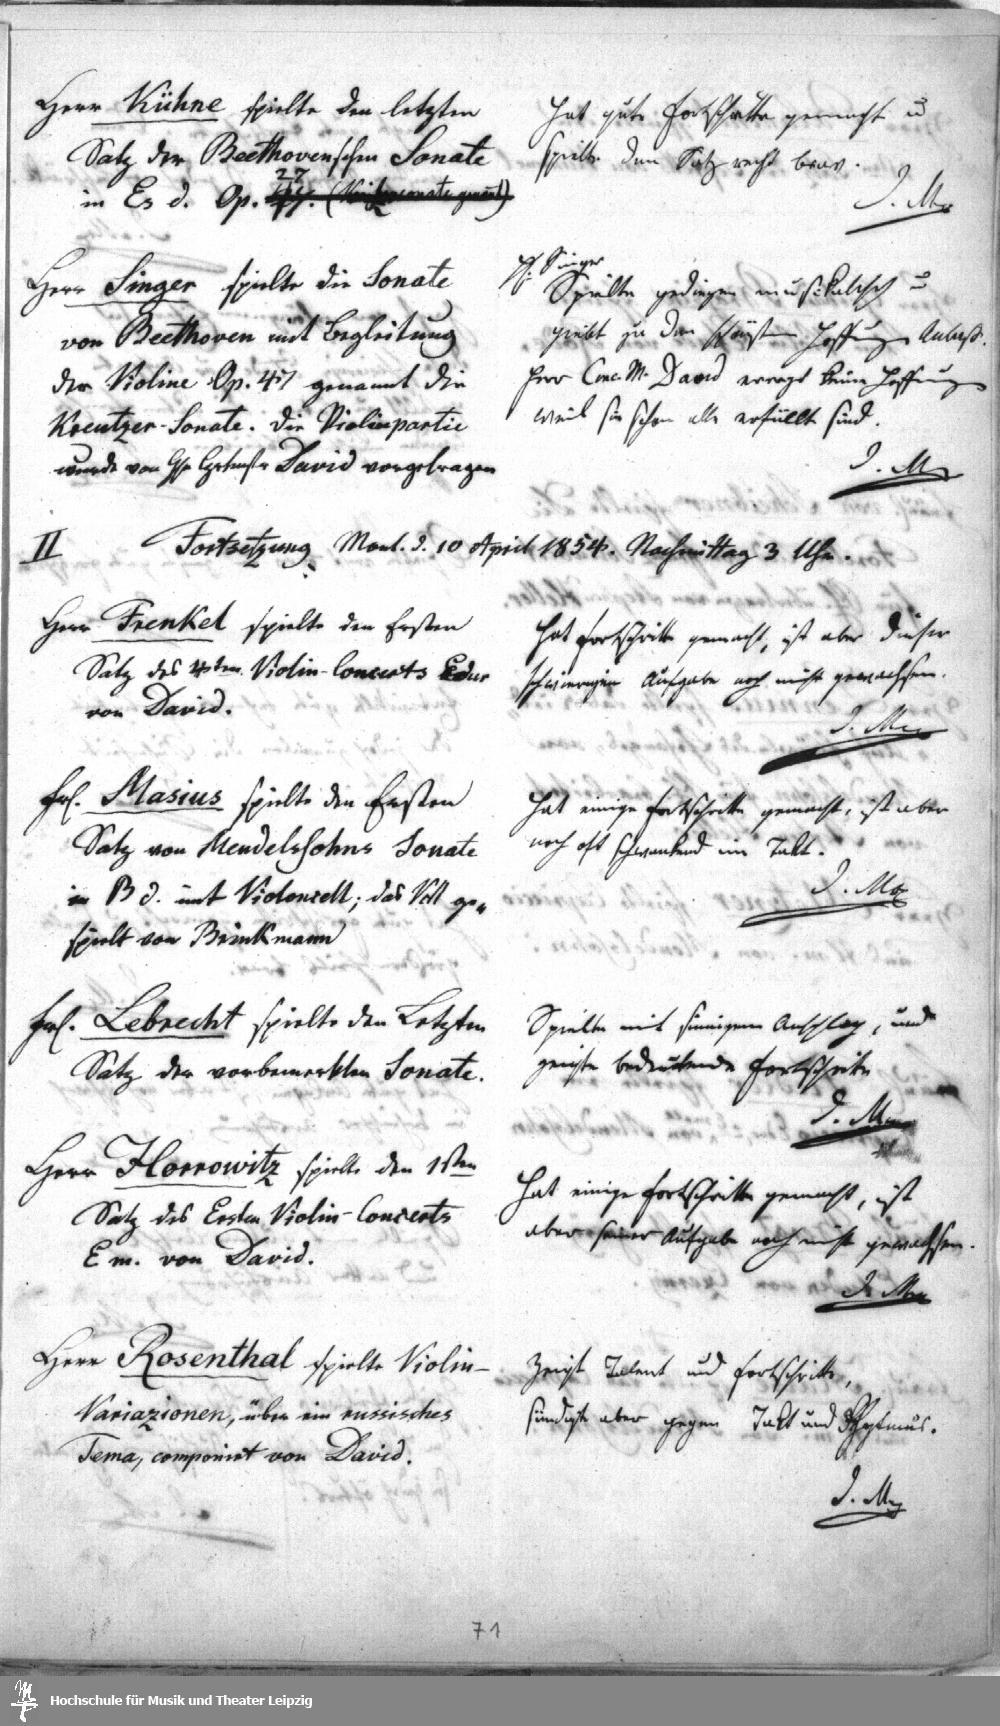 Herr Kühne spielte den letzten
Satz der Beethovenschen Sonate
in Es d. Op. 27
Hat gute Fortschritte gemacht u
spielte den Satz recht brav.
I. M
Herr Singer spielte die Sonate
von Beethoven mit Begleitung
der Violine Op. 47 genannt die
Kreutzer-Sonate. Die Violinpartie
wurde von David vorgetragen
H. Singer
Spielte gediegen musikalisch u
giebt zu den schönsten Hoffnungen Anlaß.
Herr Conc. M. David erregt keine Hoffnungen
weil sie schon alle erfüllt sind.
I. M
II Fortsetzung Mont. d. 10 April 1854. Nachmittag 3 Uhr.
Herr Frenkel spielte den Ersten
Satz des 4ten Violin-Concerts Edur
von David.
Hat Fortschritte gemacht, ist aber dieser
schwierigen Aufgabe noch nicht gewachsen.
I. M
Frl. Masius spielte den Ersten
Satz von Mendelssohns Sonate
in B d. mit Violoncell; das Vcll ge-
spielt von Brinkmann
Hat einige Fortschritte gemacht, ist aber
noch oft schwankend im Takt.
I. M
Frl. Lebrecht spielte den Letzten
Satz der vorbemerkten Sonate.
Spielte mit sinnigem Anschlag, und
zeigte bedeutende Fortschritte
I. M
Herr Horrowitz spielte den 1sten
Satz des Ersten Violin-Concerts
E m. von David.
Hat einige Fortschritte gemacht, ist
aber seiner Aufgabe noch nicht gewachsen.
I. M
Herr Rosenthal spielte Violin-
Variazionen, über ein russisches
Tema, componirt von David.
Zeigt Talent und Fortschritte,
sündigte aber gegen Takt und Rhytmus.
I. M
71
Hochschule für Musik und Theater Leipzig